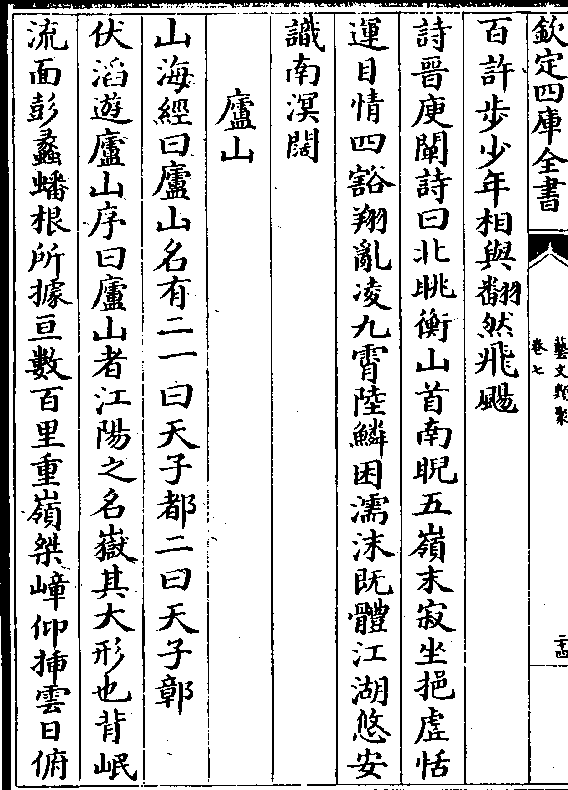 欽定四庫全書
藝文類聚
卷七
二十四
百許步少年相與翻然飛颺
詩晉庾闡詩曰北眺衡山首南睨五嶺末寂坐挹虛恬
運目情四豁翔亂凌九霄陸鱗困濡沫既體江湖悠安
識南溟闊
廬山
山海經曰廬山名有二一曰天子都二曰天子鄣
伏滔遊廬山序曰廬山者江陽之名嶽其大形也背岷
流面彭蠡蟠根所據亘數百里重嶺桀嶂仰揷雲日俯